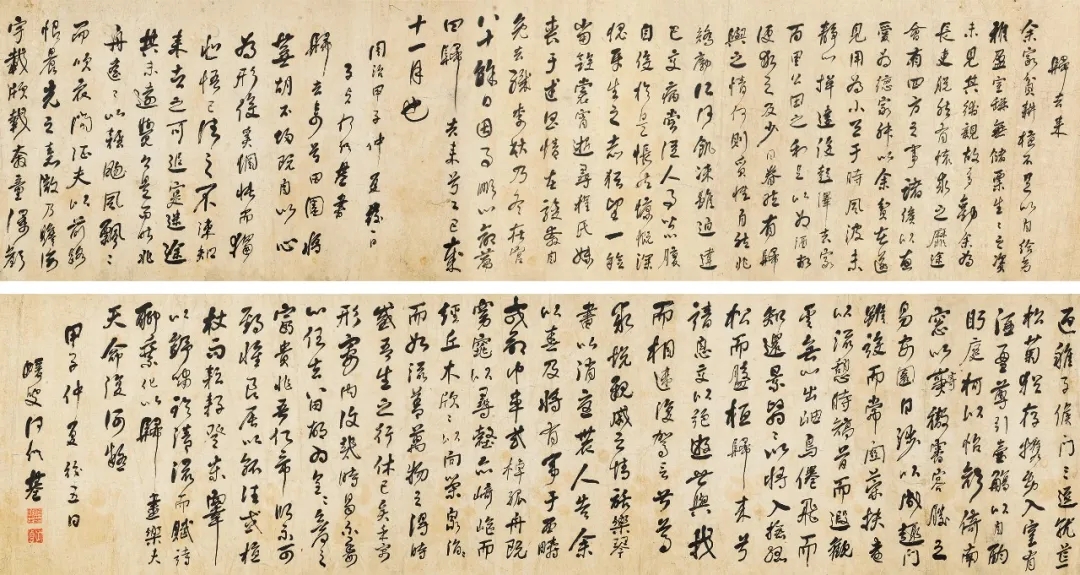 歸去來
余家貧耕植不足以自給幼
稚盈室缾無儲粟生生之資
未見其術親故多勸余為
長吏脫然有懷求之靡途
會有四方之事諸侯以惠
愛為德家叔以余貧苦遂
見用為小邑于時風波未
靜心憚遠役彭澤去家
百里公田之利足以為酒故
便求之及少日眷然有歸
與之情何則質性自然非
矯勵所得飢凍雖違
己交病嘗從人事皆口腹
自役於是悵然慷慨深
愧平生之志猶望一稔
當斂裳宵逝尋程氏妹
喪于武昌情在駿奔自
免去職秋至冬在官
八十餘日因事順心命篇
曰歸去來兮乙巳歲
十一月也
同治甲子仲夏日
子貞何紹基書
歸去來兮田園將
蕪胡不歸既自以心
為形役奚惆悵而獨
悲悟已往之不諫知
來者之可追寔迷途
其未遠覺今是而昨非
舟遙遙以輕颺風飄飄
而吹衣問征夫以前路
恨晨光之熹微乃瞻衡
宇載欣載奔童僕歡
迎稚子候門三逕就荒
松菊猶存攜幼入室有
酒盈尊引壺觴以自酌
眄庭柯以怡顏倚南
窗以寄傲審容膝之
易安園日涉以成趣門
雖設而常關策扶老
以流憩時矯首而遐觀
雲無心以出岫鳥倦飛而
知還景翳翳以將入撫孤
松而盤桓歸去來兮
請息交以絕遊世與我
而相違復駕言兮焉
求悅親戚之情話樂琴
書以消憂農人告余
以春及將有事于西疇
或命巾車或棹孤舟既
窈窕以尋壑亦崎嶇而
經丘木欣欣以向榮泉涓涓
而始流善萬物之得時
感吾生之行休已矣乎寓
形宇內復幾時曷不委
心任去留胡為皇皇欲何之
富貴非吾願帝鄉不可
期懷良辰以孤往或植
杖而耘耔登東皋
以舒嘯臨清流而賦詩
聊乘化以歸盡樂夫
天命復奚疑
甲子仲夏初五日
蝯叟何紹基